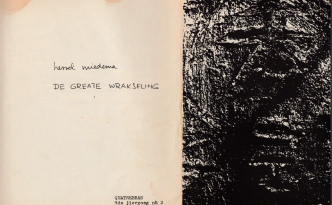 hessel miedema
DE GREATE WRAKSELING
QUATREBRAS
9de jiergong nû 2